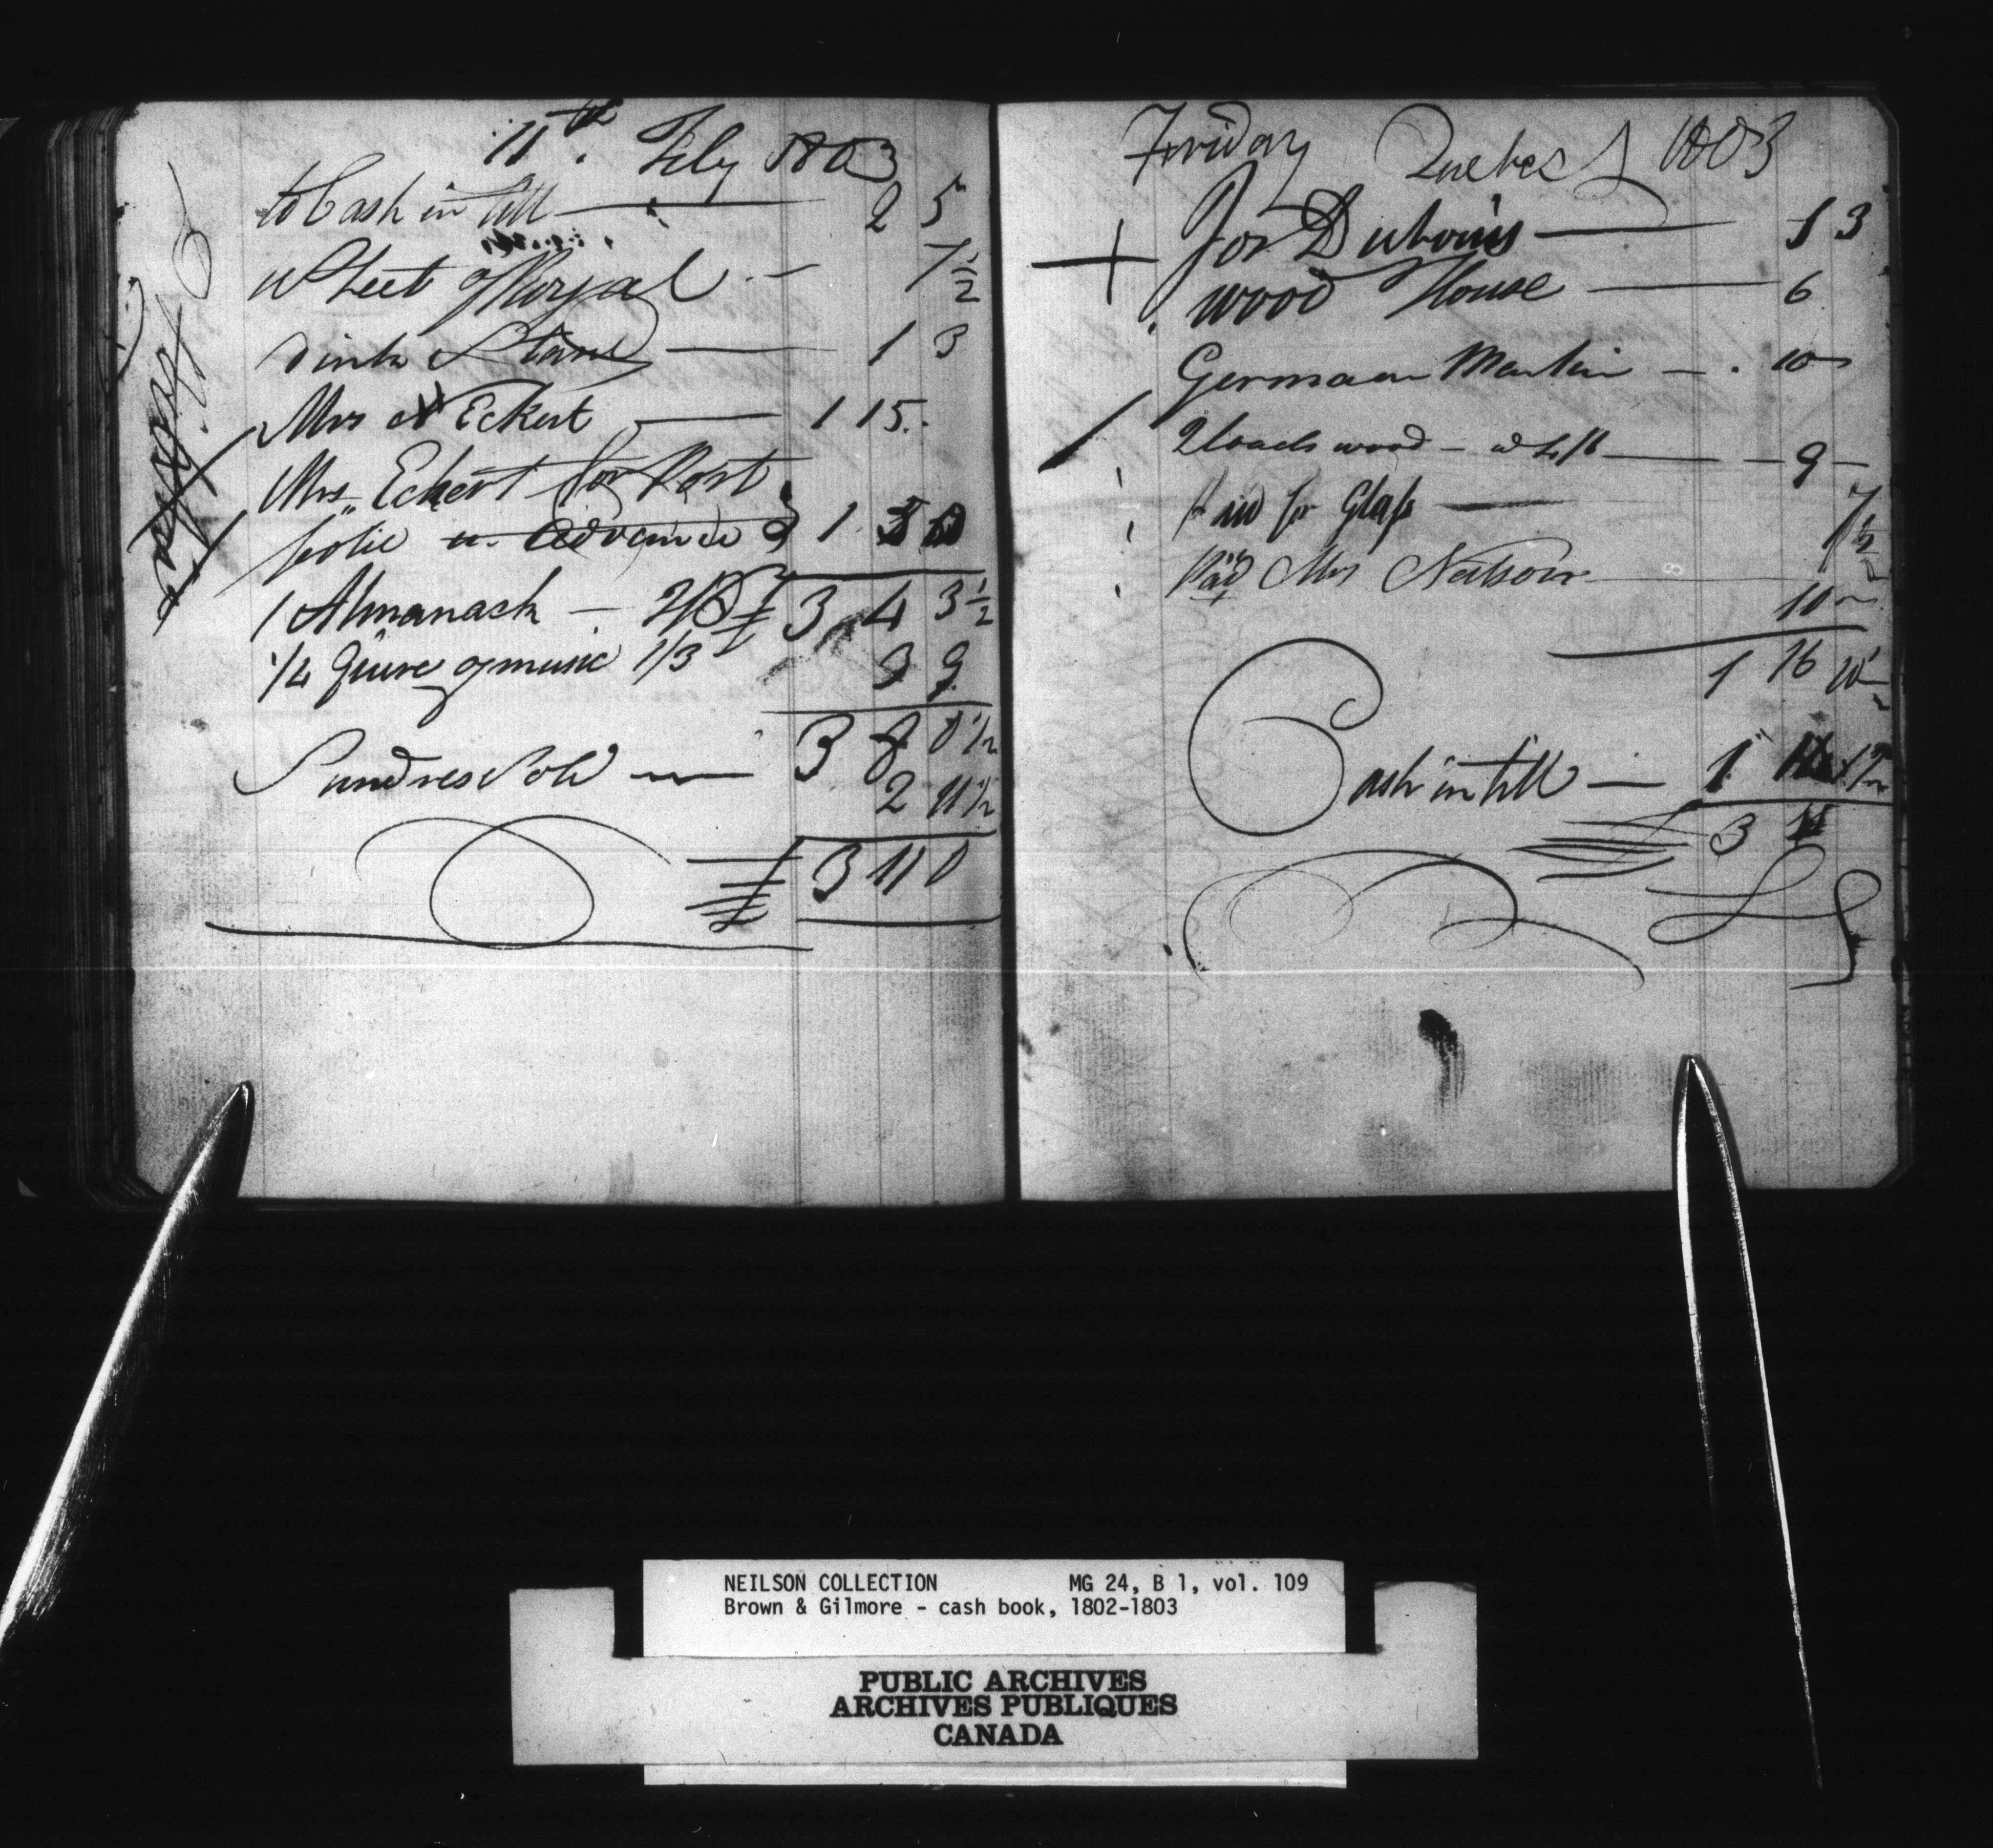 11th. Feby 1803
to Cash in till — 2 5
Sheet of Royal — 7 1/2
1 ink Stand — 1 3
Mrs Eckert — 1 15
Mrs Eckert for Port
folio 1
1 Almanack — 2/6 3 4 3 1/2
1/4 Quire of music 1/3 3 9
3 8 0 1/2
Sundres Sold — 2 11 1/2
3 11 0
Friday Quebec 1803
for Dubois — 1 3
wood House — 6
German Martin — 10
2 loads wood — 9
Paid for Glass — 7 1/2
Paid Mrs Neilson 10
1 16 10
Cash in till — 1
3 11
NEILSON COLLECTION MG 24, B 1, vol. 109
Brown & Gilmore - cash book, 1802-1803
PUBLIC ARCHIVES
ARCHIVES PUBLIQUES
CANADA